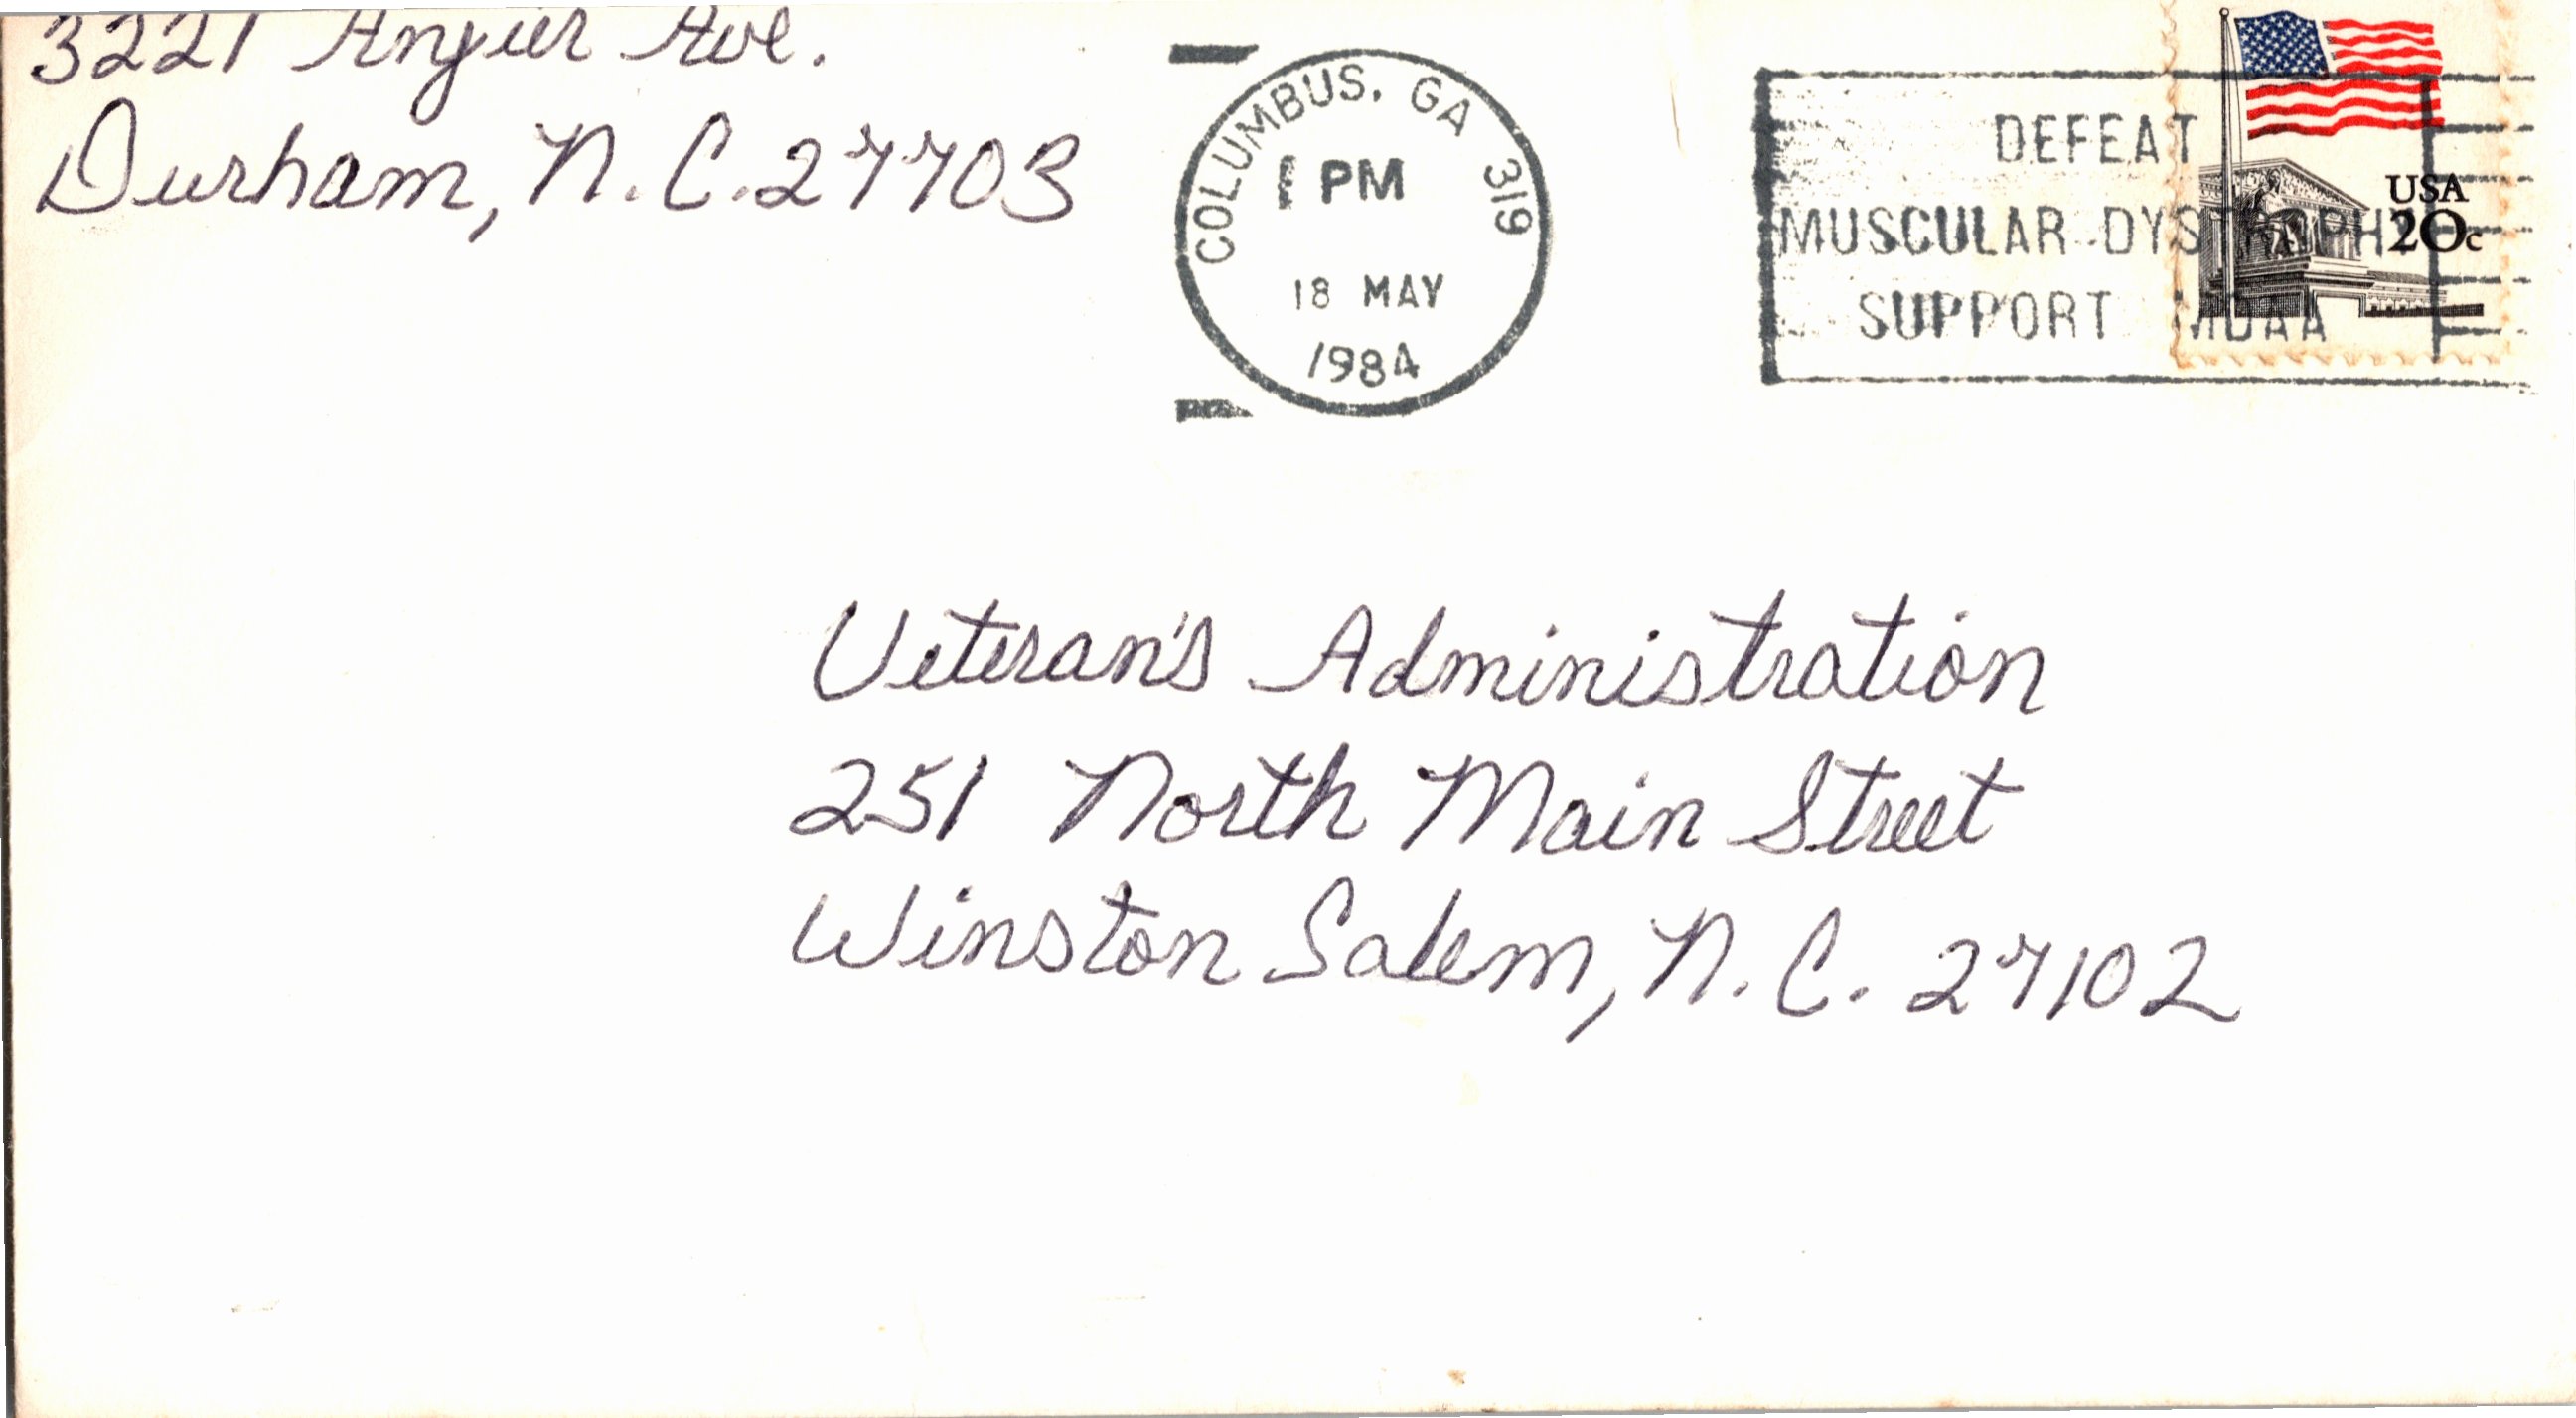 3221 Angier Ave.
Durham, N.C. 27703
COLUMBUS, GA 319
1 PM
18 MAY
1984
DEFEAT
MUSCULAR DYSTROPHY
SUPPORT MDAA
USA
20c
Veteran's Administration
251 North Main Street
Winston Salem, N.C. 27102